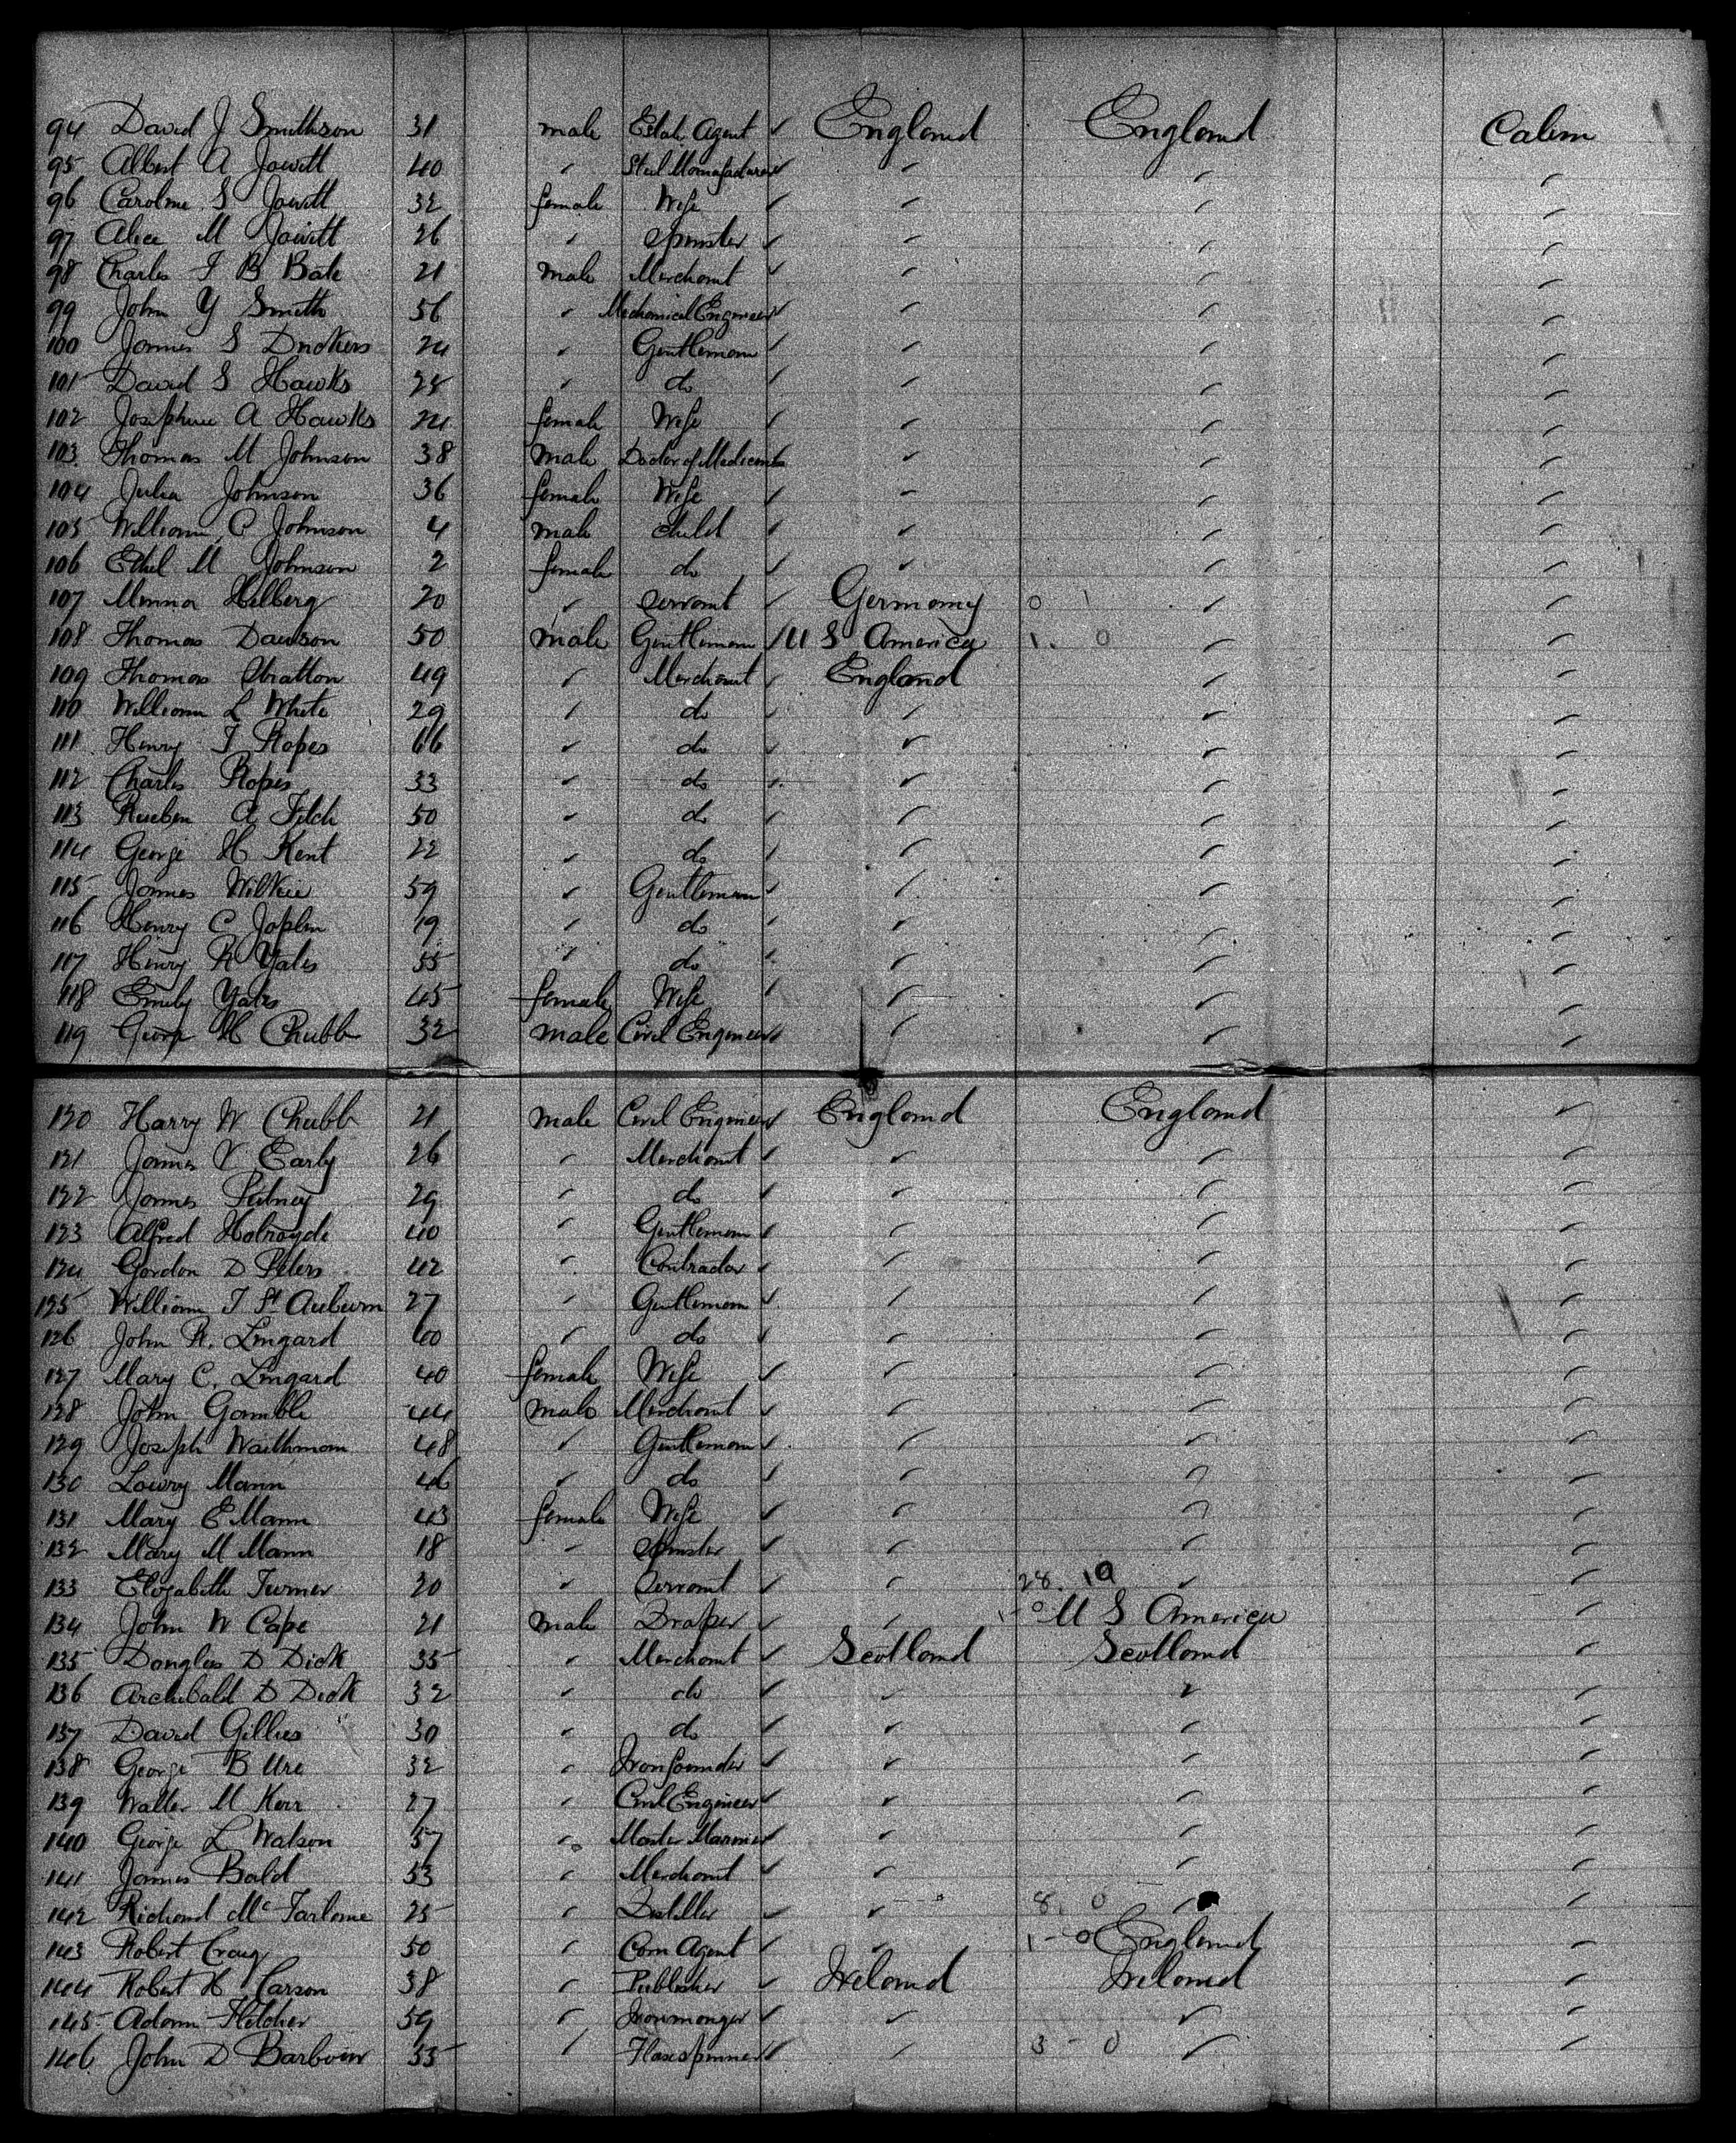 94 David J Smithson 31 male Estate Agent ✓ England England Cabin
95 Albert A Jowitt 40 " Steel Manufacturer ✓ " " "
96 Caroline S Jowitt 32 female Wife ✓ " " "
97 Alice M Jowitt 26 " Spinster ✓ " " "
98 Charles F B Bate 21 male Merchant ✓ " " "
99 John Y Smith 56 " Mechanical Engineer ✓ " " "
100 James S 24 " Gentleman ✓ " " "
101 David S Hawks 25 " do ✓ " " "
102 Josephine A Hawks 24 female Wife ✓ " " "
103 Thomas M Johnson 38 male Doctor of Medicine ✓ " " "
104 Julia Johnson 36 female Wife ✓ " " "
105 William C Johnson 4 male Child ✓ " " "
106 Ethel M Johnson 2 female do ✓ " " "
107 Minna Hilberg 20 " Servant ✓ Germany 0 1 " "
108 Thomas Dawson 50 male Gentleman ✓ U S America 1. 0 " "
109 Thomas Stratton 49 " Merchant ✓ England " "
110 William L White 29 " do ✓ " " "
111 Henry T Ropes 66 " do ✓ " " "
112 Charles Ropes 33 " do ✓ " " "
113 Rueben A Fitch 50 " do ✓ " " "
114 George H Kent 22 " do ✓ " " "
115 James Wilkie 59 " Gentleman ✓ " " "
116 Henry C Joplin 19 " do ✓ " " "
117 Henry R Yates 55 " do ✓ " " "
118 Emily Yates 45 female Wife ✓ " " "
119 George H Chubb 32 male Civil Engineer ✓ " " "
120 Harry W Chubb 21 male Civil Engineer ✓ England England "
121 James V Early 26 " Merchant ✓ " " "
122 James Putney 29 " do ✓ " " "
123 Alfred Holroyde 40 " Gentleman ✓ " " "
124 Gordon D Peters 42 " Contractor ✓ " " "
125 William T St Auburn 27 " Gentleman ✓ " " "
126 John R. Lingard 60 " do ✓ " " "
127 Mary C. Lingard 40 female Wife ✓ " " "
128 John Gamble 44 male Merchant ✓ " " "
129 Joseph Waithman 48 " Gentleman ✓ " " "
130 Lowry Mann 46 " do ✓ " " "
131 Mary E Mann 43 female Wife ✓ " " "
132 Mary M Mann 18 " Spinster ✓ " " "
133 Elizabeth Turner 20 " Servant ✓ " 28. 10 " "
134 John W Cape 21 male Draper ✓ " 1-0 U S America "
135 Douglas D Dick 35 " Merchant ✓ Scotland Scotland "
136 Archibald D Dick 32 " do ✓ " " "
137 David Gillies 30 " do ✓ " " "
138 George B Ure 32 " Ironfounder ✓ " " "
139 Walter M Kerr 27 " Civil Engineer ✓ " " "
140 George L Watson 57 " Master Mariner ✓ " " "
141 James Bald 53 " Merchant ✓ " " "
142 Richard McFarlane 25 " Distiller ✓ " 8. 0 " "
143 Robert Craig 50 " Corn Agent ✓ " 1-0 England "
144 Robert H Carson 38 " Publisher ✓ Ireland Ireland "
145 Adam Fletcher 59 " Ironmonger ✓ " " "
146 John D Barbour 55 " Flaxspinner ✓ " 3-0 " "